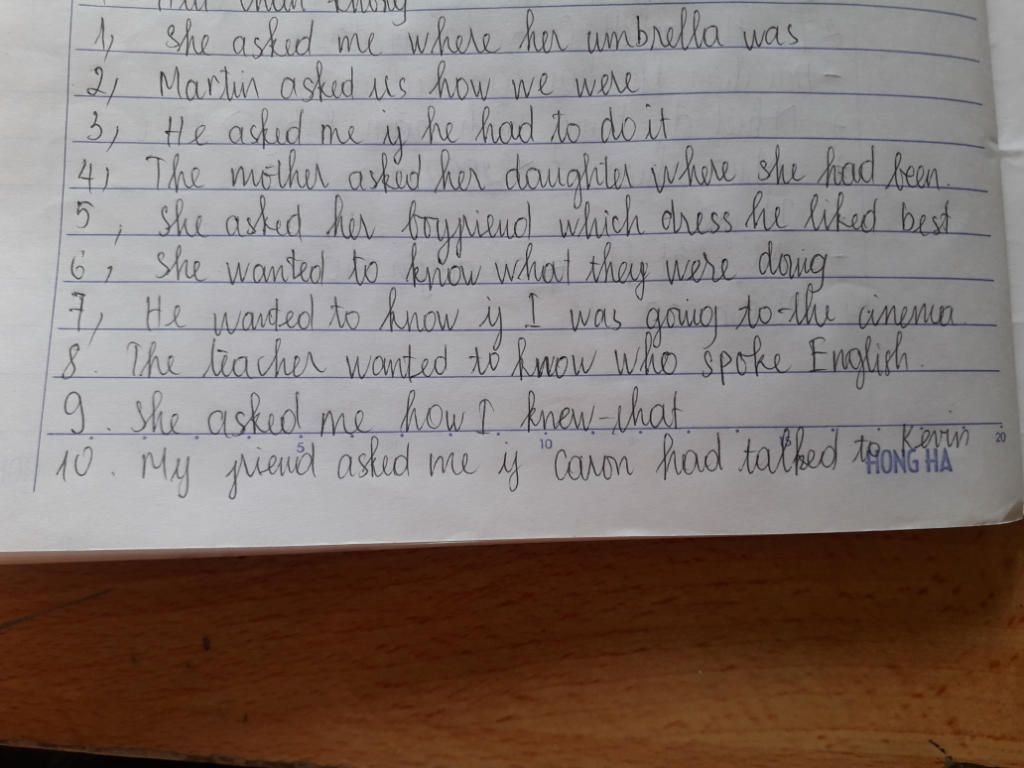 1, She asked me where her umbrella was
2, Martin asked us how we were
3, He asked me if he had to do it
4, The mother asked her daughter where she had been.
5, She asked her boyfriend which dress he liked best
6, She wanted to know what they were doing
7, He wanted to know if I was going to the cinema
8. The teacher wanted to know who spoke English.
9. She asked me how I knew that
5 10 20
10. My friend asked me if Caron had talked to Kevin
HONG HA